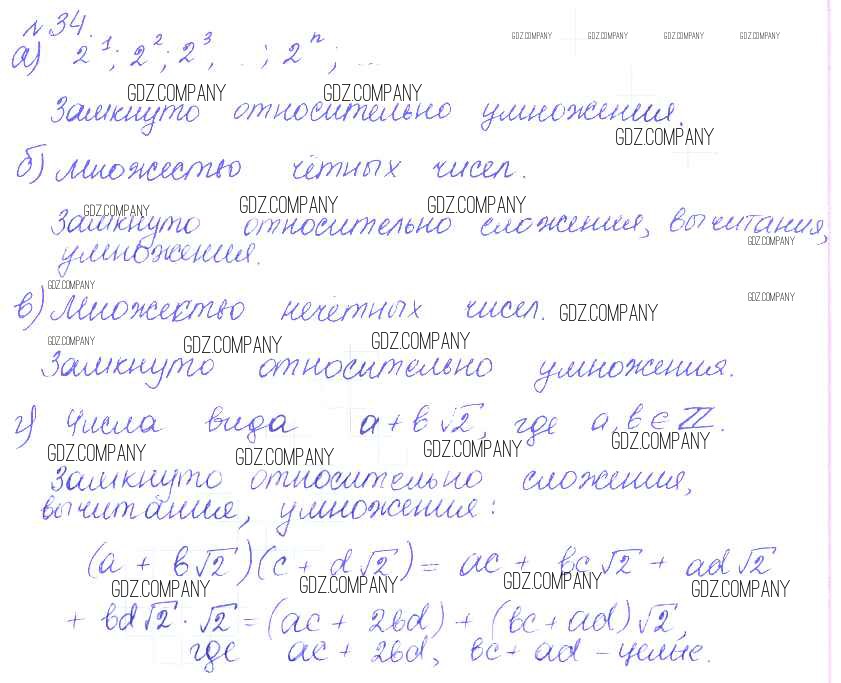 №34.
GDZ.COMPANY GDZ.COMPANY GDZ.COMPANY GDZ.COMPANY
а) 2^1; 2^2; 2^3, ...; 2^n; ...
GDZ.COMPANY GDZ.COMPANY
Замкнуто относительно умножения.
GDZ.COMPANY
б) Множество чётных чисел.
GDZ.COMPANY GDZ.COMPANY GDZ.COMPANY
Замкнуто относительно сложения, вычитания,
GDZ.COMPANY
умножения.
GDZ.COMPANY GDZ.COMPANY
в) Множество нечётных чисел. GDZ.COMPANY
GDZ.COMPANY GDZ.COMPANY GDZ.COMPANY
Замкнуто относительно умножения.
г) Числа вида a + b√2, где a, b ∈ ℤ.
GDZ.COMPANY GDZ.COMPANY GDZ.COMPANY GDZ.COMPANY
Замкнуто относительно сложения,
вычитания, умножения:
(a + b√2)(c + d√2) = ac + bc√2 + ad√2
GDZ.COMPANY GDZ.COMPANY GDZ.COMPANY GDZ.COMPANY
+ bd√2 · √2 = (ac + 2bd) + (bc + ad)√2,
где ac + 2bd, bc + ad – целые.